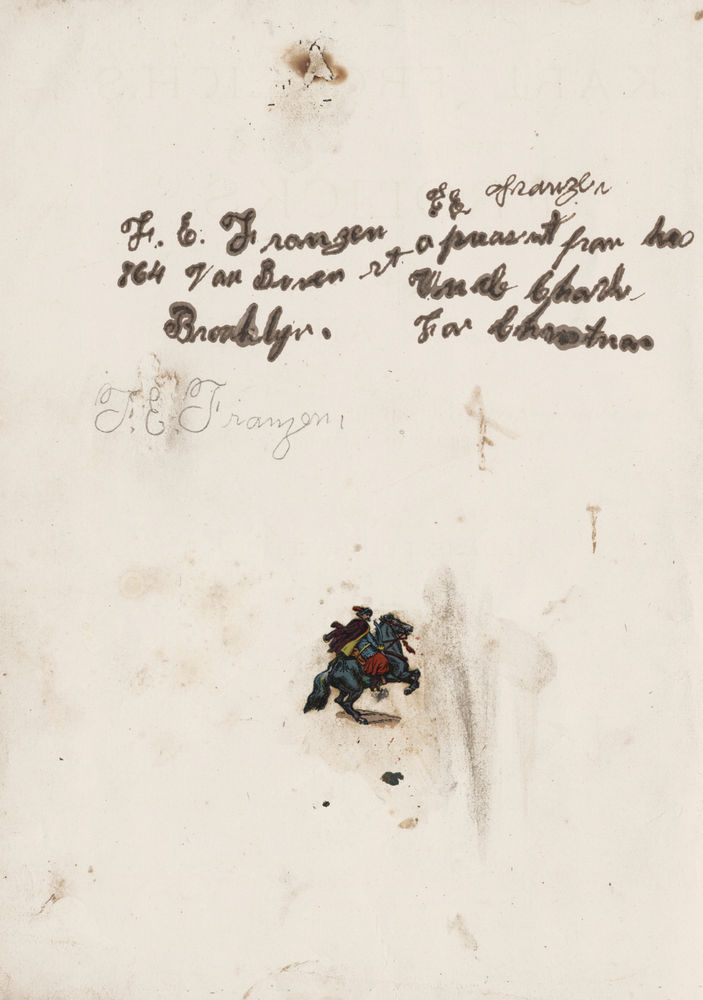 F. E. Franzen
864 Van Buren st
Brooklyn.
F E Franzen
a present from his
Uncle Charle
For Christmas
F. E. Franzen.